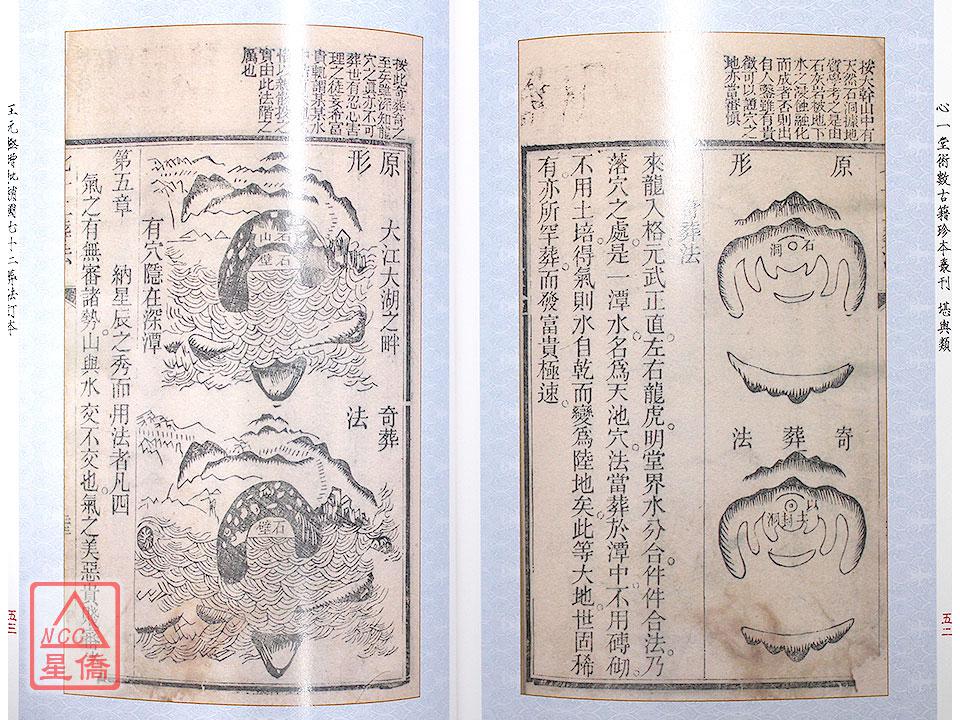 心一堂術數古籍珍本叢刊 堪輿類
按大幹山中有
天然石洞據地
質學考之是由
石灰岩被地下
水之侵蝕融化
而成者否則出
有人鑿雖有貴
徵可以證穴之
地亦當審慎
原形
石
洞
寄葬法
以土封洞
來龍入格元武正直左右龍虎明堂界水分合件件合法乃
落穴之處是一潭水名爲天池穴法當葬於潭中不用磚砌
不用土培得氣則水自乾而變爲陸地矣此等大地世固稀
有亦所罕葬而發富貴極速
五二
按此奇葬奇之
至矣雖深知龍
穴之真亦不可
葬世有忍心害
理之徒妄希富
貴
實由此法階之
厲也
原形
大江大湖之畔
有穴隱在深潭
石山
石壁
奇葬法
石壁
第五章 納星辰之秀而用法者凡四
氣之有無審諸勢山與水交不交也氣之美惡貴賤
五三
NCC
星僑